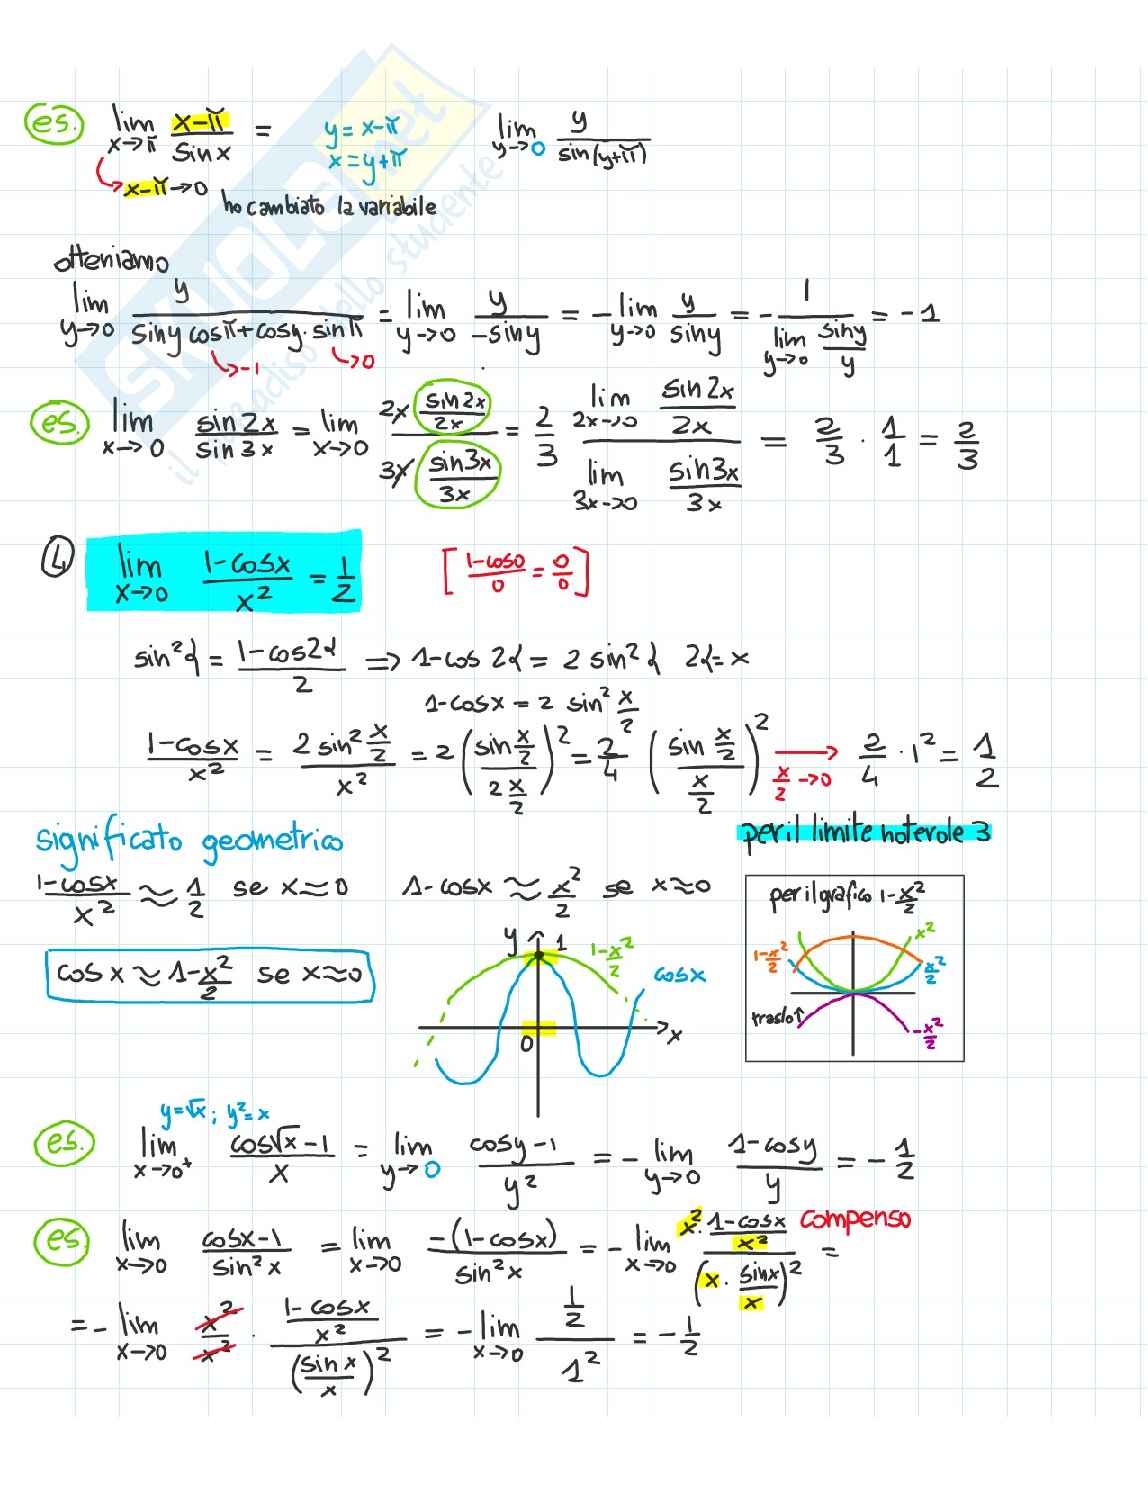 es. lim x→π (x-π)/(sin x) = y = x-π lim y→0 y/(sin(y+π))
x = y+π
x-π→0 ho cambiato la variabile
otteniamo
lim y→0 y/(siny cosπ + cosy · sinπ) = lim y→0 y/(-siny) = - lim y→0 y/(siny) = - 1/(lim y→0 siny/y) = -1
→-1 →0
es. lim x→0 (sin 2x)/(sin 3x) = lim x→0 (2x (sin 2x)/(2x))/(3x (sin 3x)/(3x)) = 2/3 (lim 2x→0 (sin 2x)/(2x))/(lim 3x→0 (sin 3x)/(3x)) = 2/3 · 1/1 = 2/3
4 lim x→0 (1-cosx)/x² = 1/2 [(1-cos0)/0 = 0/0]
sin²α = (1-cos2α)/2 => 1-cos 2α = 2 sin²α 2α = x
1-cosx = 2 sin² x/2
(1-cosx)/x² = (2 sin² x/2)/x² = 2 ((sin x/2)/(2 x/2))² = 2/4 ((sin x/2)/(x/2))² → x/2→0 2/4 · 1² = 1/2
significato geometrico per il limite notevole 3
(1-cosx)/x² ≈ 1/2 se x≈0 1-cosx ≈ x²/2 se x≈0
cos x ≈ 1-x²/2 se x≈0
y 1 1-x²/2 cosx
0 x
per il grafico 1-x²/2
1-x²/2 x² x²/2
traslo↑ -x²/2
y=√x ; y²=x
es. lim x→0⁺ (cos√x -1)/x = lim y→0 (cosy-1)/y² = - lim y→0 (1-cosy)/y = - 1/2
es lim x→0 (cosx-1)/(sin²x) = lim x→0 (-(1-cosx))/(sin²x) = - lim x→0 (x² · (1-cosx)/x²)/(x · (sinx)/x)² = compenso
= - lim x→0 x²/x² · ((1-cosx)/x²)/((sin x)/x)² = - lim x→0 (1/2)/1² = - 1/2
SKUOLA.net
il paradiso dello studente